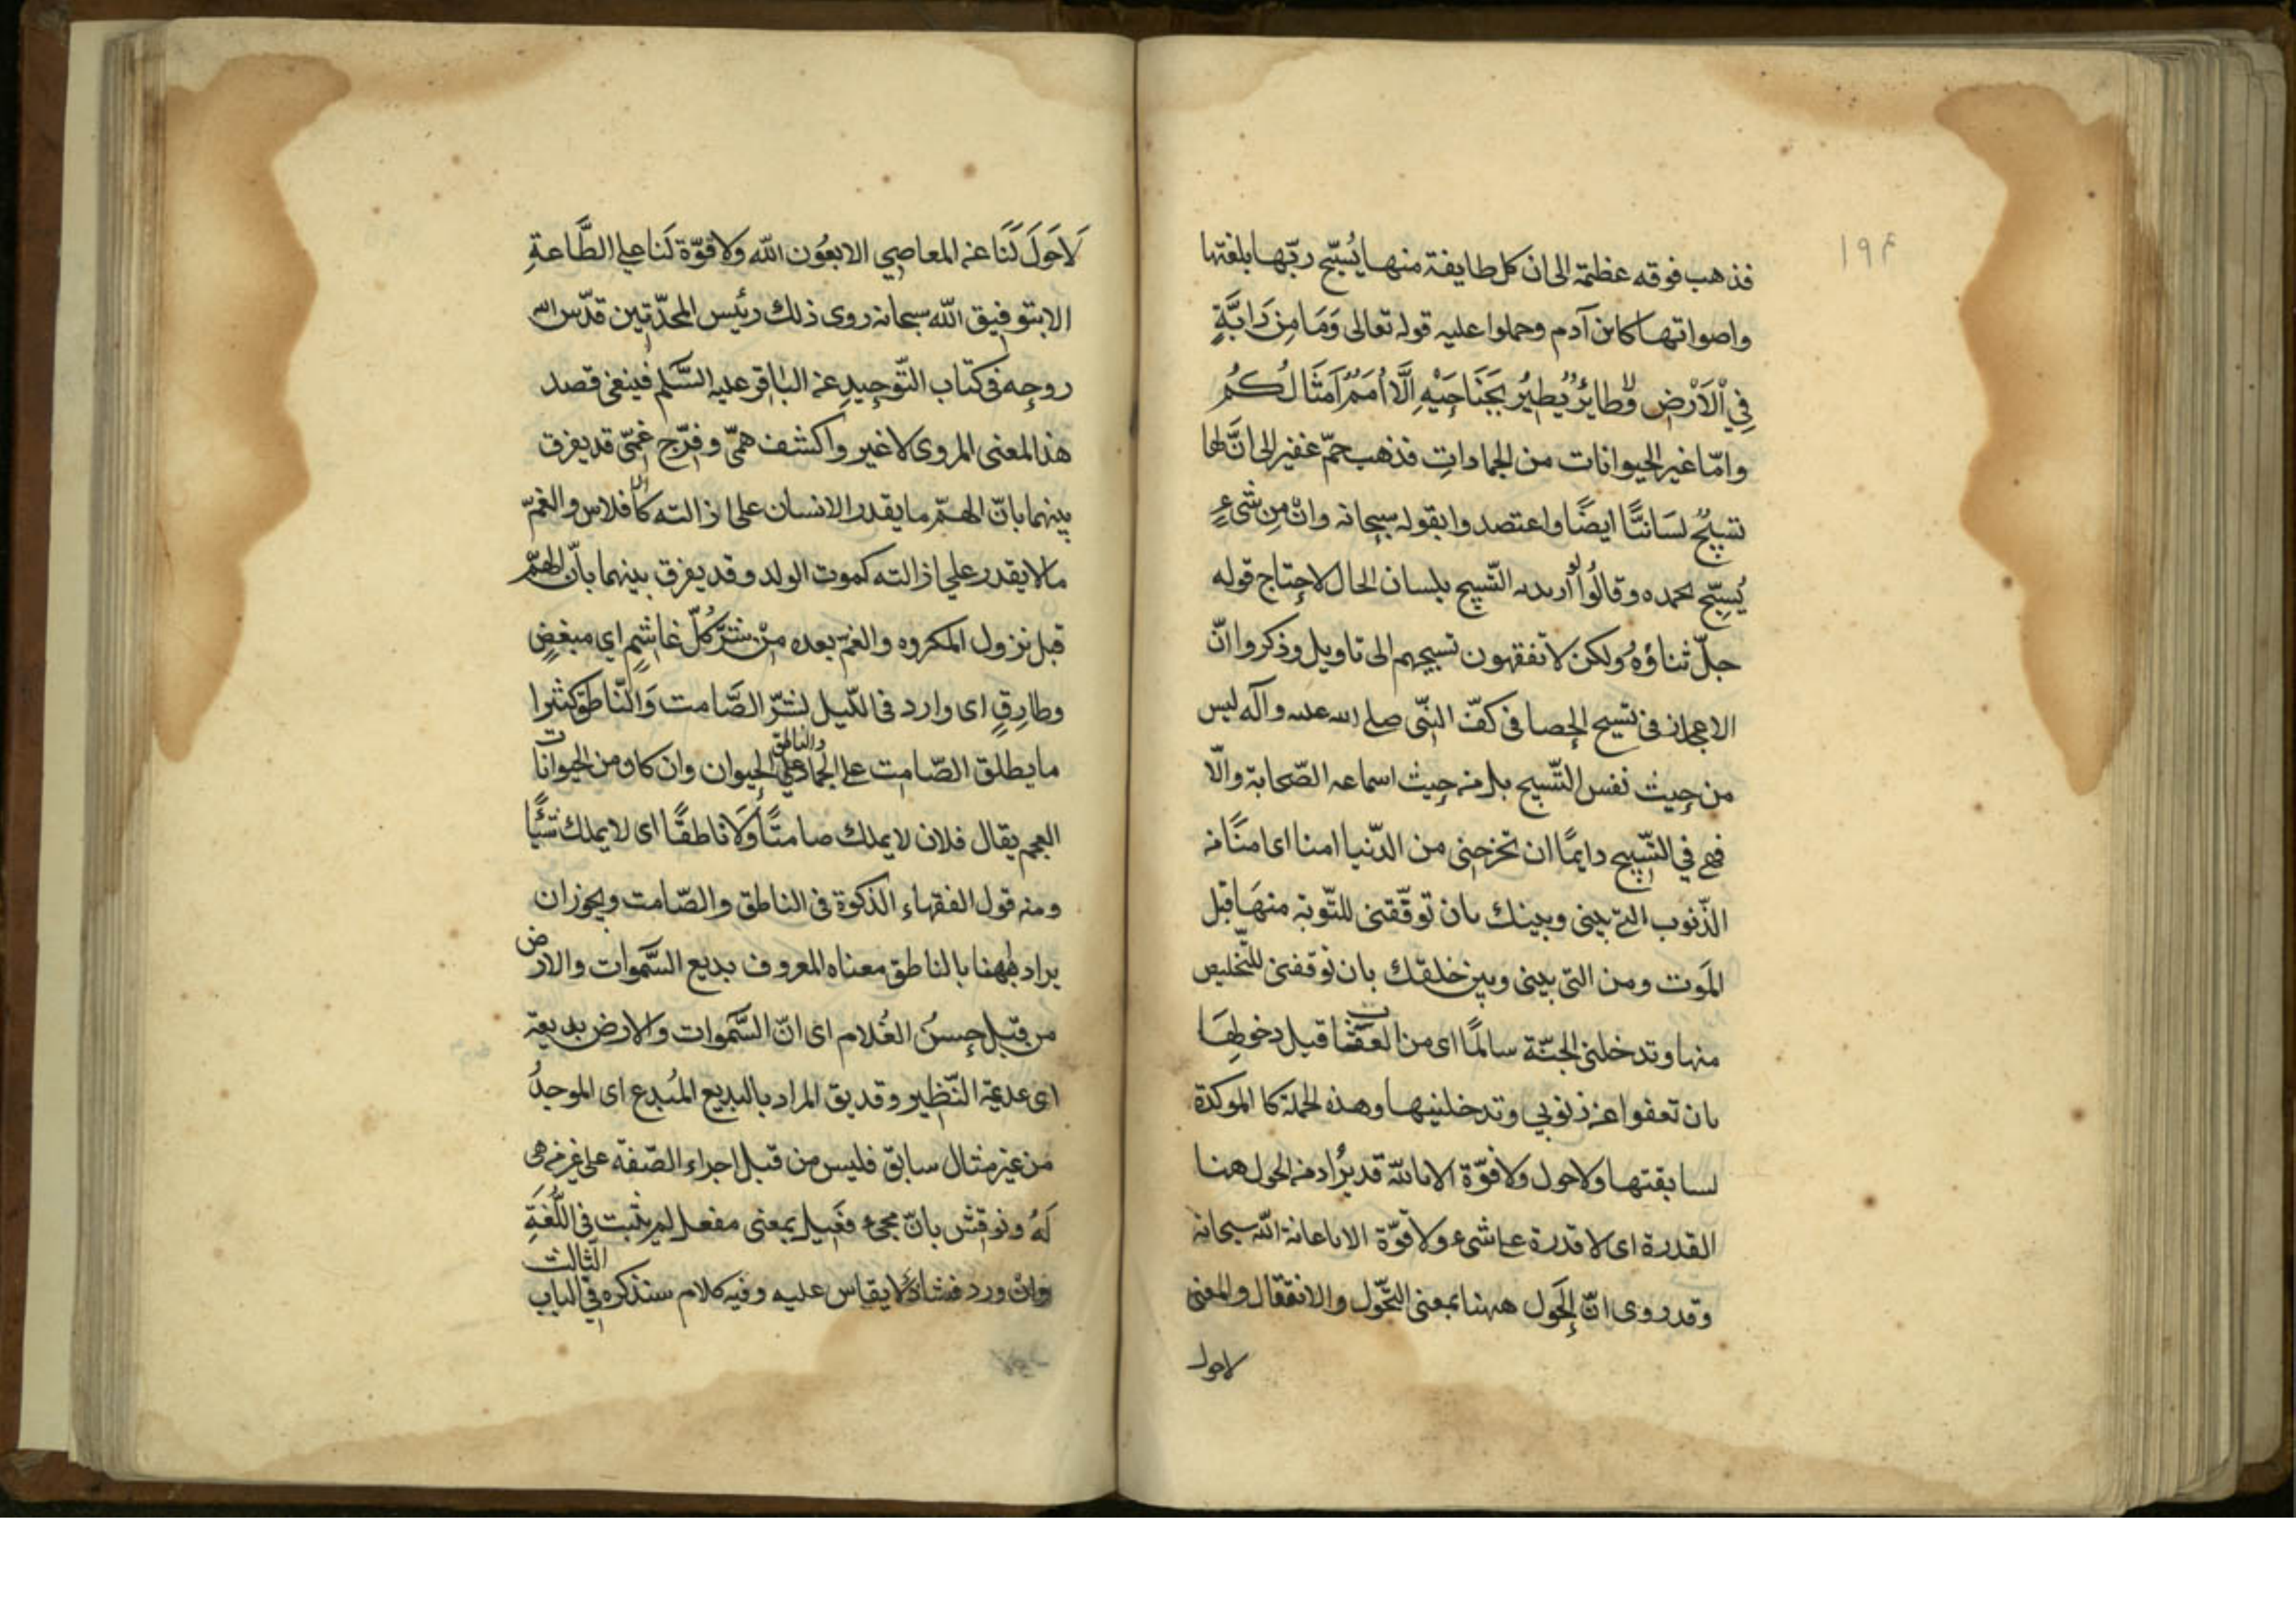 ۱۹۴
فذهب فوقه عظيمة الى ان كل طايفة منها يُسبّح ربّها بلغتها
واصواتها كابن آدم وحملوا عليه قوله تعالى وَمَا مِن دَابَّةٍ
فِي الْاَرْضِ وَلا طائِرٌ يُطيرُ بِجَنَاحَيْهِ اِلَّا اُمَمٌ اَمثَالُكُم
وامّا غير الحيوانات من الجمادات فذهب جمّ غفير الى انَّ لها
تسبيحٌ لسَانيًّا ايضًا واعتضدوا بقوله سبحانه وانْ مِن شَىءٍ
يُسبّح بحمده وقالُوا لو اريد به التّسبيح بلسان الحال لاحتاج قوله
جلّ ثناؤهُ ولكن لا تفقهون تسبيحهم الى تاويل وذكروا انّ
الاعجاز فى تسبيح الحصا فى كفّ النّبى صلى الله عليه وآله ليس
من حيث نفس التّسبيح بل من حيث اسماعه الصّحابة والّا
فهى في التّسبيح دايمًا ان تخرجنى من الدّنيا امنا اى امنًا من
الذّنوب التى بينى وبينك بان توفّقنى للتّوبة منهَا قبل
المَوت ومن التى بينى وبين خلقك بان توفقنى للتّخليص
منها وتدخلنى الجنّة سالمًا اى من العقبات قبل دخولِهَا
بان تعفوا عن ذنوبي وتدخلنيها وهذه الجملة كالموكدة
لسابقتها ولا حول ولا قوّة الا بالله قد يرُاد من الحول هنا
القدرة اى لا قدرة على شىء ولا قوّة الا باعانة الله سبحانه
وقد روى انّ الحَول ههنا بمعنى التّحّول والانتقال والمعنى
لاحول
لَاحَولَ لَنَا عن المعاصي الا بعَون الله وَلا قوّة لَنا على الطَّاعةِ
الا بتوفيق الله سبحانه روى ذلك رئيس المحدّثين قدّس الله
روحه فى كتاب التّوحيد عن البَاقر عليه السَّلم فينبغى قصد
هذا المعنى المروى لا غير واكشف همّى وفرّج غمّى قد يفرق
بينهما بانّ الهمّ ما يقدر الانسان على ازالته كالافلاس والغمّ
مالا يقدر علي ازالته كموت الولد وقد يفرق بينهما بانّ الهمّ
قبل نزول المكروه والغمّ بعده مِنْ شرّ كُلّ غاشِمٍ اي مبغضٍ
وطارِقٍ اى وارد فى اللّيل لشرّ الصَّامت وَالنّاطق كثيرا
ما يطلق الصّامت على الجماد والناطق على الحيوان وان كان من الحيوانات
العجم يقال فلان لا يملك صامتًا وَلا ناطقًا اى لا يملك شيًئا
ومنه قول الفقهاء الذكوة فى الناطق والصّامت ويجوز ان
يراد ههنا بالناطق معناه المعروف بديع السَّموات والارض
من قبل حسنُ الغُلام اى انّ السَّموات والارض بديعة
اى عديمة النّظير وقد يق المراد بالبديع المُبدع اى الموجدُ
من غير مثال سابق فليس من قبل اجراء الصّفة على غير من هى
لهُ ونوقش بانّ مجىء فعَيل بمعنى مفعل لم يثبت فى اللّغَةِ
وانْ ورد فشاذّ لا يقاس عليه وفيه كلام سنذكره فى الباب الثالث